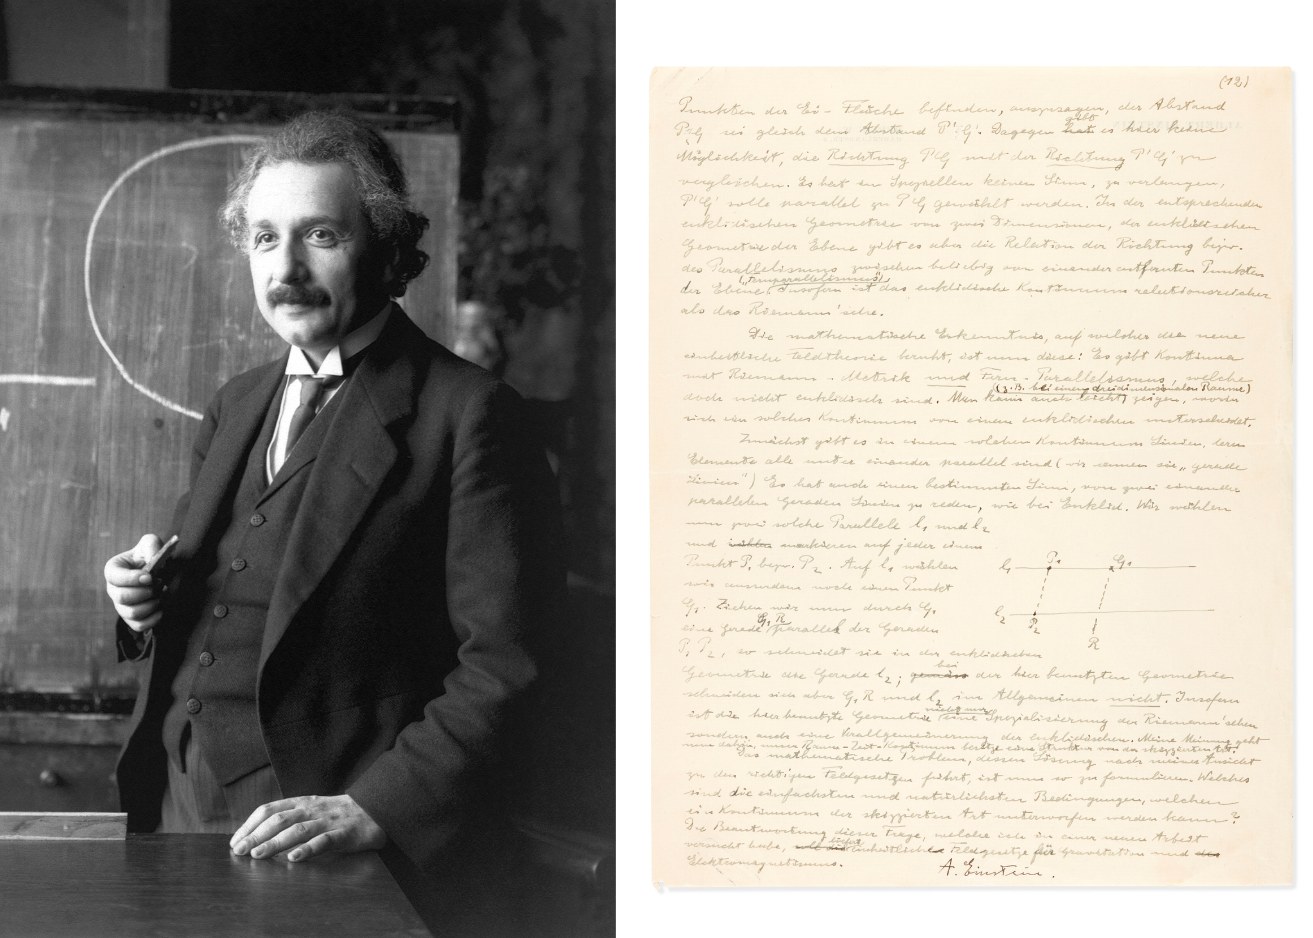 (12)
Punkten der Ei-Fläche befinden, auszusagen, der Abstand
PG sei gleich dem Abstand P'G'. Dagegen gibt hat es hier keine
Möglichkeit, die Richtung PG mit der Richtung P'G' zu
vergleichen. Es hat im Speziellen keinen Sinn, zu verlangen,
P'G' solle parallel zu PG gewählt werden. In der entsprechenden
euklidischen Geometrie von zwei Dimensionen, der euklidischen
Geometrie der Ebene gibt es aber die Relation der Richtung bezw.
des Parallelismus zwischen beliebig von einander entfernten Punkten
der Ebene („Fernparallelismus"). Insofern ist das euklidische Kontinuum relationsreicher
als das Riemann'sche.
Die mathematische Erkenntnis, auf welcher die neue
einheitliche Feldtheorie beruht, ist nun diese: Es gibt Kontinua
mit Riemann-Metrik und Fern-Parallelismus, welche
doch nicht euklidisch sind. Man kann auch leicht (z.B. bei einem dreidimensionalen Raume) zeigen, worin
sich ein solches Kontinuum von einem euklidischen unterscheidet.
Zunächst gibt es in einem solchen Kontinuum Linien, deren
Elemente alle unter einander parallel sind (wir nennen sie „gerade
Linien") Es hat auch einen bestimmten Sinn, von zwei einander
parallelen Geraden Linien zu reden, wie bei Euklid. Wir wählen
nun zwei solche Parallele l₁ und l₂
und wählen markieren auf jeder einen
Punkt P₁ bezw. P₂. Auf l₁ wählen
wir ausserdem noch einen Punkt
G₁. Ziehen wir nun durch G₁
eine Gerade G₁R parallel der Geraden
P₁P₂, so schneidet sie in der euklidischen
l₁ P₁ G₁
l₂ P₂ R
Geometrie die Gerade l₂; gemäss bei der hier benutzten Geometrie
schneiden sich aber G₁R und l₂ im Allgemeinen nicht. Insofern
ist die hier benutzte Geometrie nicht nur eine Spezialisierung der Riemann'schen
sondern auch eine Verallgemeinerung der euklidischen. Meine Meinung geht
nun dahin, unser Raum-Zeit-Kontinuum besitze eine Struktur von der skizzierten Art.
Das mathematische Problem, dessen Lösung nach meiner Ansicht
zu den richtigen Feldgesetzen führt, ist nun so zu formulieren. Welches
sind die einfachsten und natürlichsten Bedingungen, welchen
ein Kontinuum der skizzierten Art unterworfen werden kann?
Die Beantwortung dieser Frage, welche ich in einer neuen Arbeit
versucht habe, liefert einheitliche Feldgesetze für Gravitation und
Elektromagnetismus.
A. Einstein.